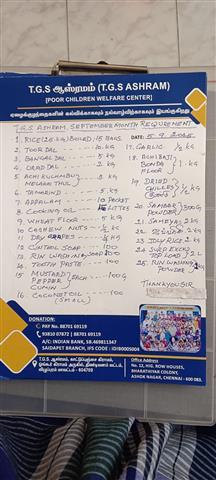 T.G.S ஆஸ்ரமம் (T.G.S ASHRAM)
[POOR CHILDREN WELFARE CENTER]
ஏழைக்குழந்தைகளின் கல்விக்காகவும் நல்வாழ்விற்காகவும் இயங்குகிறது
T.G.S ASHRAM, SEPTEMBER MONTH REQUIREMENT
1. RICE (26 KG) BOILED, 15 BAGS
DATE: 5-9-2025
2. TOOR DAL
3. BENGAL DAL 5 KG
4. ORAD DAL 2 KG
5. KG
6. TAMARIND 5 KG
7. APPALAM 10 PACKET
8. COOKING OIL LITTES
9. WHEAT FLOOR 5 KG
10 CASHEW NUTS ½ KG
11 DRY ½ KG
12 CONTROL SOAP 100
13. RIN WASHING SOAP 100
14. TOOTH PASTE 100
15 MUSTARD
PEPPER EACH 100G
CUMIN
16 COCONUT OIL 100
(SMALL)
17. GARLIC ½ KG
18
BONDA 1 KG
FLOOR
19. DRIED
CHILLES KG
20. SAMBAR 300G
POWDER
21. 2 KG
22 2 KG
23. IDLY RICE 2 KG
24. SURF EXCEL
TOP LOAD 2 L
25. RIN WASHING
POWDER
THANK YOU SIR
DONATION:
PAY No. 88701 69119
93810 07872 | 88701 69119
A/C: INDIAN BANK, SB.469811347
SAIDAPET BRANCH, IFS CODE : IDIB000S008
T.G.S. ஆஸ்ரமம்,
விழுப்புரம் மாவட்டம் - 604703
Office Address
No. 12, HIG, ROW HOUSES,
BHARATHIYAR COLONY,
ASHOK NAGAR, CHENNAI - 600 083.